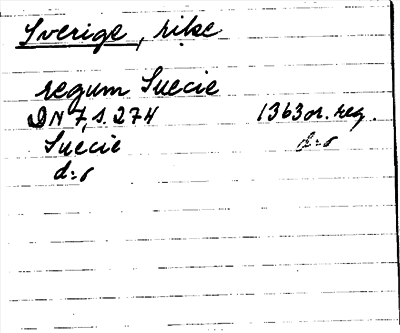 Sverige, rike
regum Suecie
DN 7, s. 274 1363 or. reg.
Suecie d:o
d:o